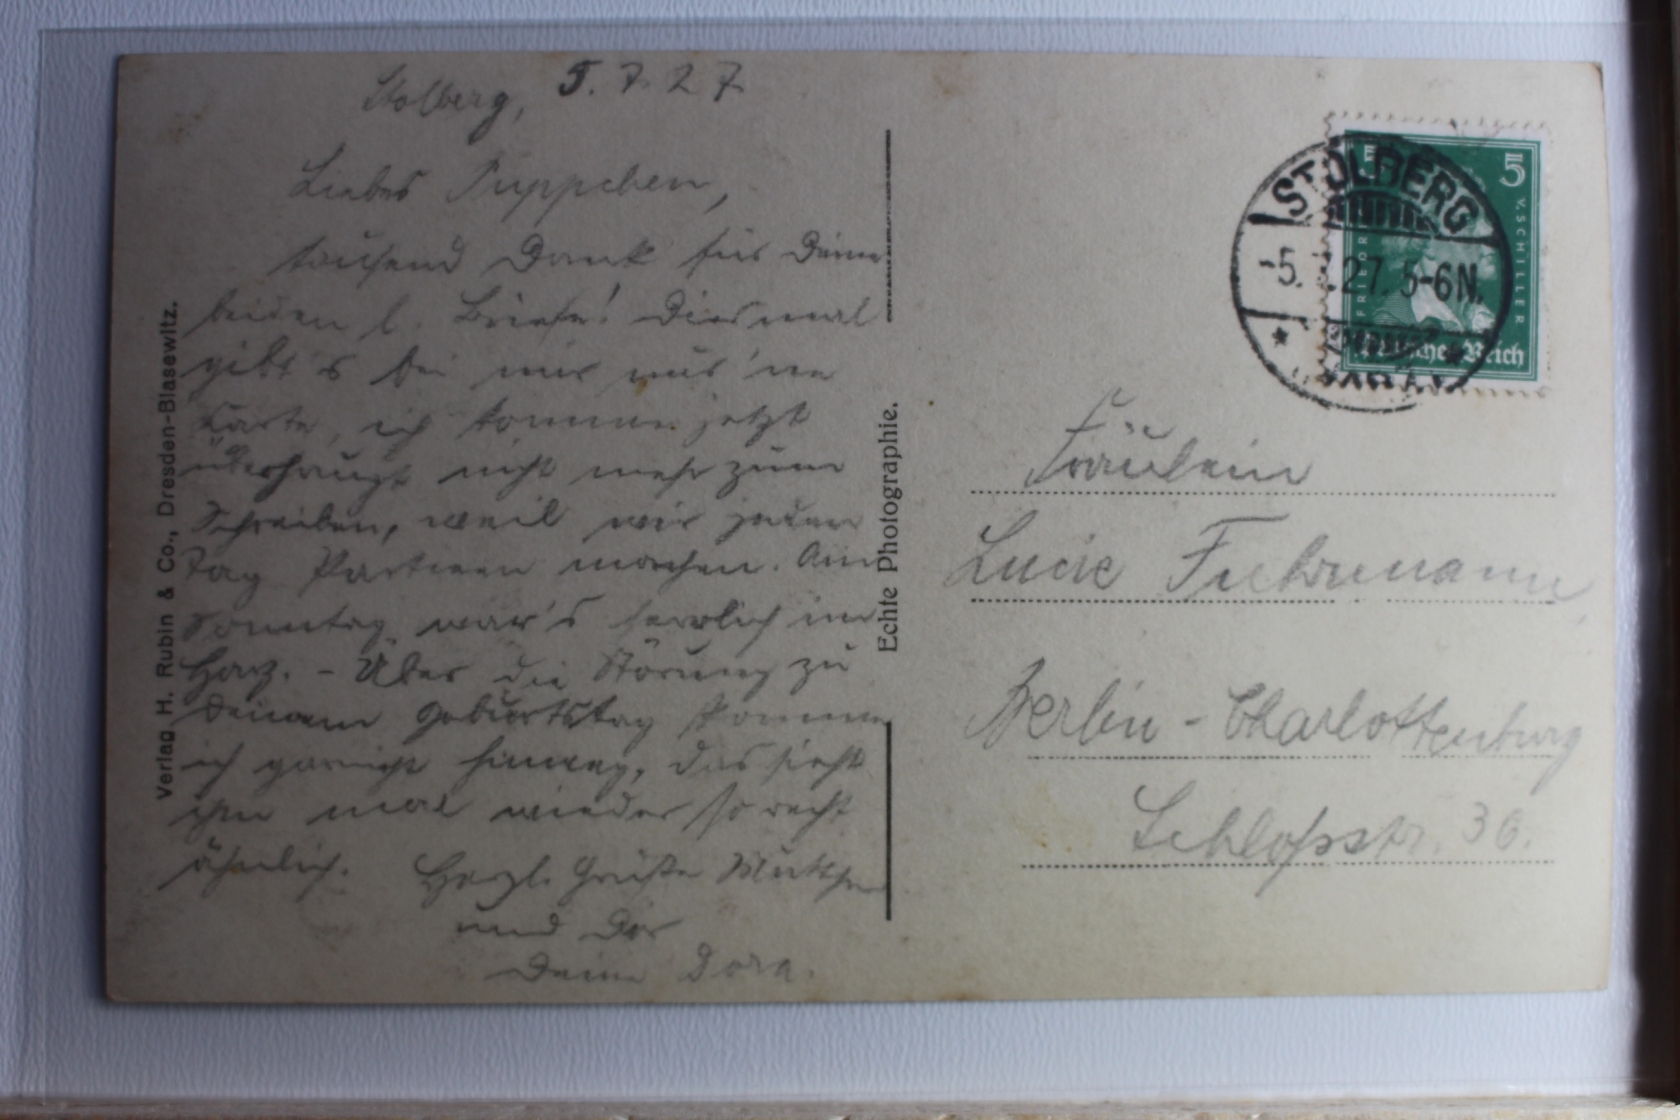 Stolberg, 5.7.27
Liebes Puppchen,
tausend Dank für Deine
beiden l. Briefe! Diesmal
gibt's bei mir nur 'ne
Karte, ich komme jetzt
überhaupt nicht mehr zum
Schreiben, weil wir jeden
Tag Partieen machen. Am
Sonntag war's herrlich im
Harz. - Über die Störung zu
Deinem Geburtstag komme
ich garnicht hinweg, das sieht
ihm mal wieder so recht
ähnlich. Herzl. Grüße Muttchen
und Dir
Deine Dora.
Verlag H. Rubin & Co., Dresden-Blasewitz.
Echte Photographie.
STOLBERG
-5. 27. 5-6N.
5 5
FRIEDR. V. SCHILLER
Deutsches Reich
Fräulein
Lucie Fuhrmann
Berlin - Charlottenburg
Schloßstr. 36.